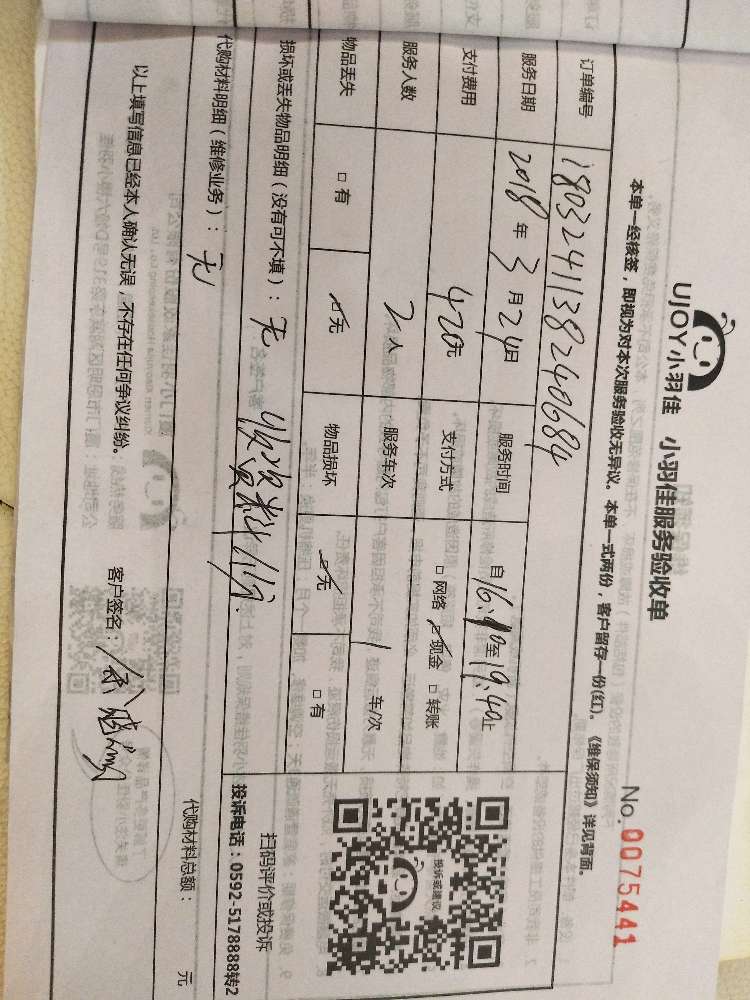 UJOY小羽佳 小羽佳服务验收单
No.0075441
本单一经核签,即视为对本次服务验收无异议。本单一式两份,客户留存一份(红)。《维保须知》详见背面。
订单编号 1803241138240684
服务日期 2018年3月24日 服务时间 自16:40至19:40止
支付费用 420元 支付方式 □网络 ☑现金 □转账
服务人数 2人 服务车次 1 车/次
物品丢失 □有 ☑无 物品损坏 ☑无 □有
损坏或丢失物品明细(没有可不填):无 收资料1份
代购材料明细(维修业务):无
代购材料总额: 元
以上填写信息已经本人确认无误,不存在任何争议纠纷。
客户签名:
投诉或建议
扫码评价或投诉
投诉电话:0592-5178888转2